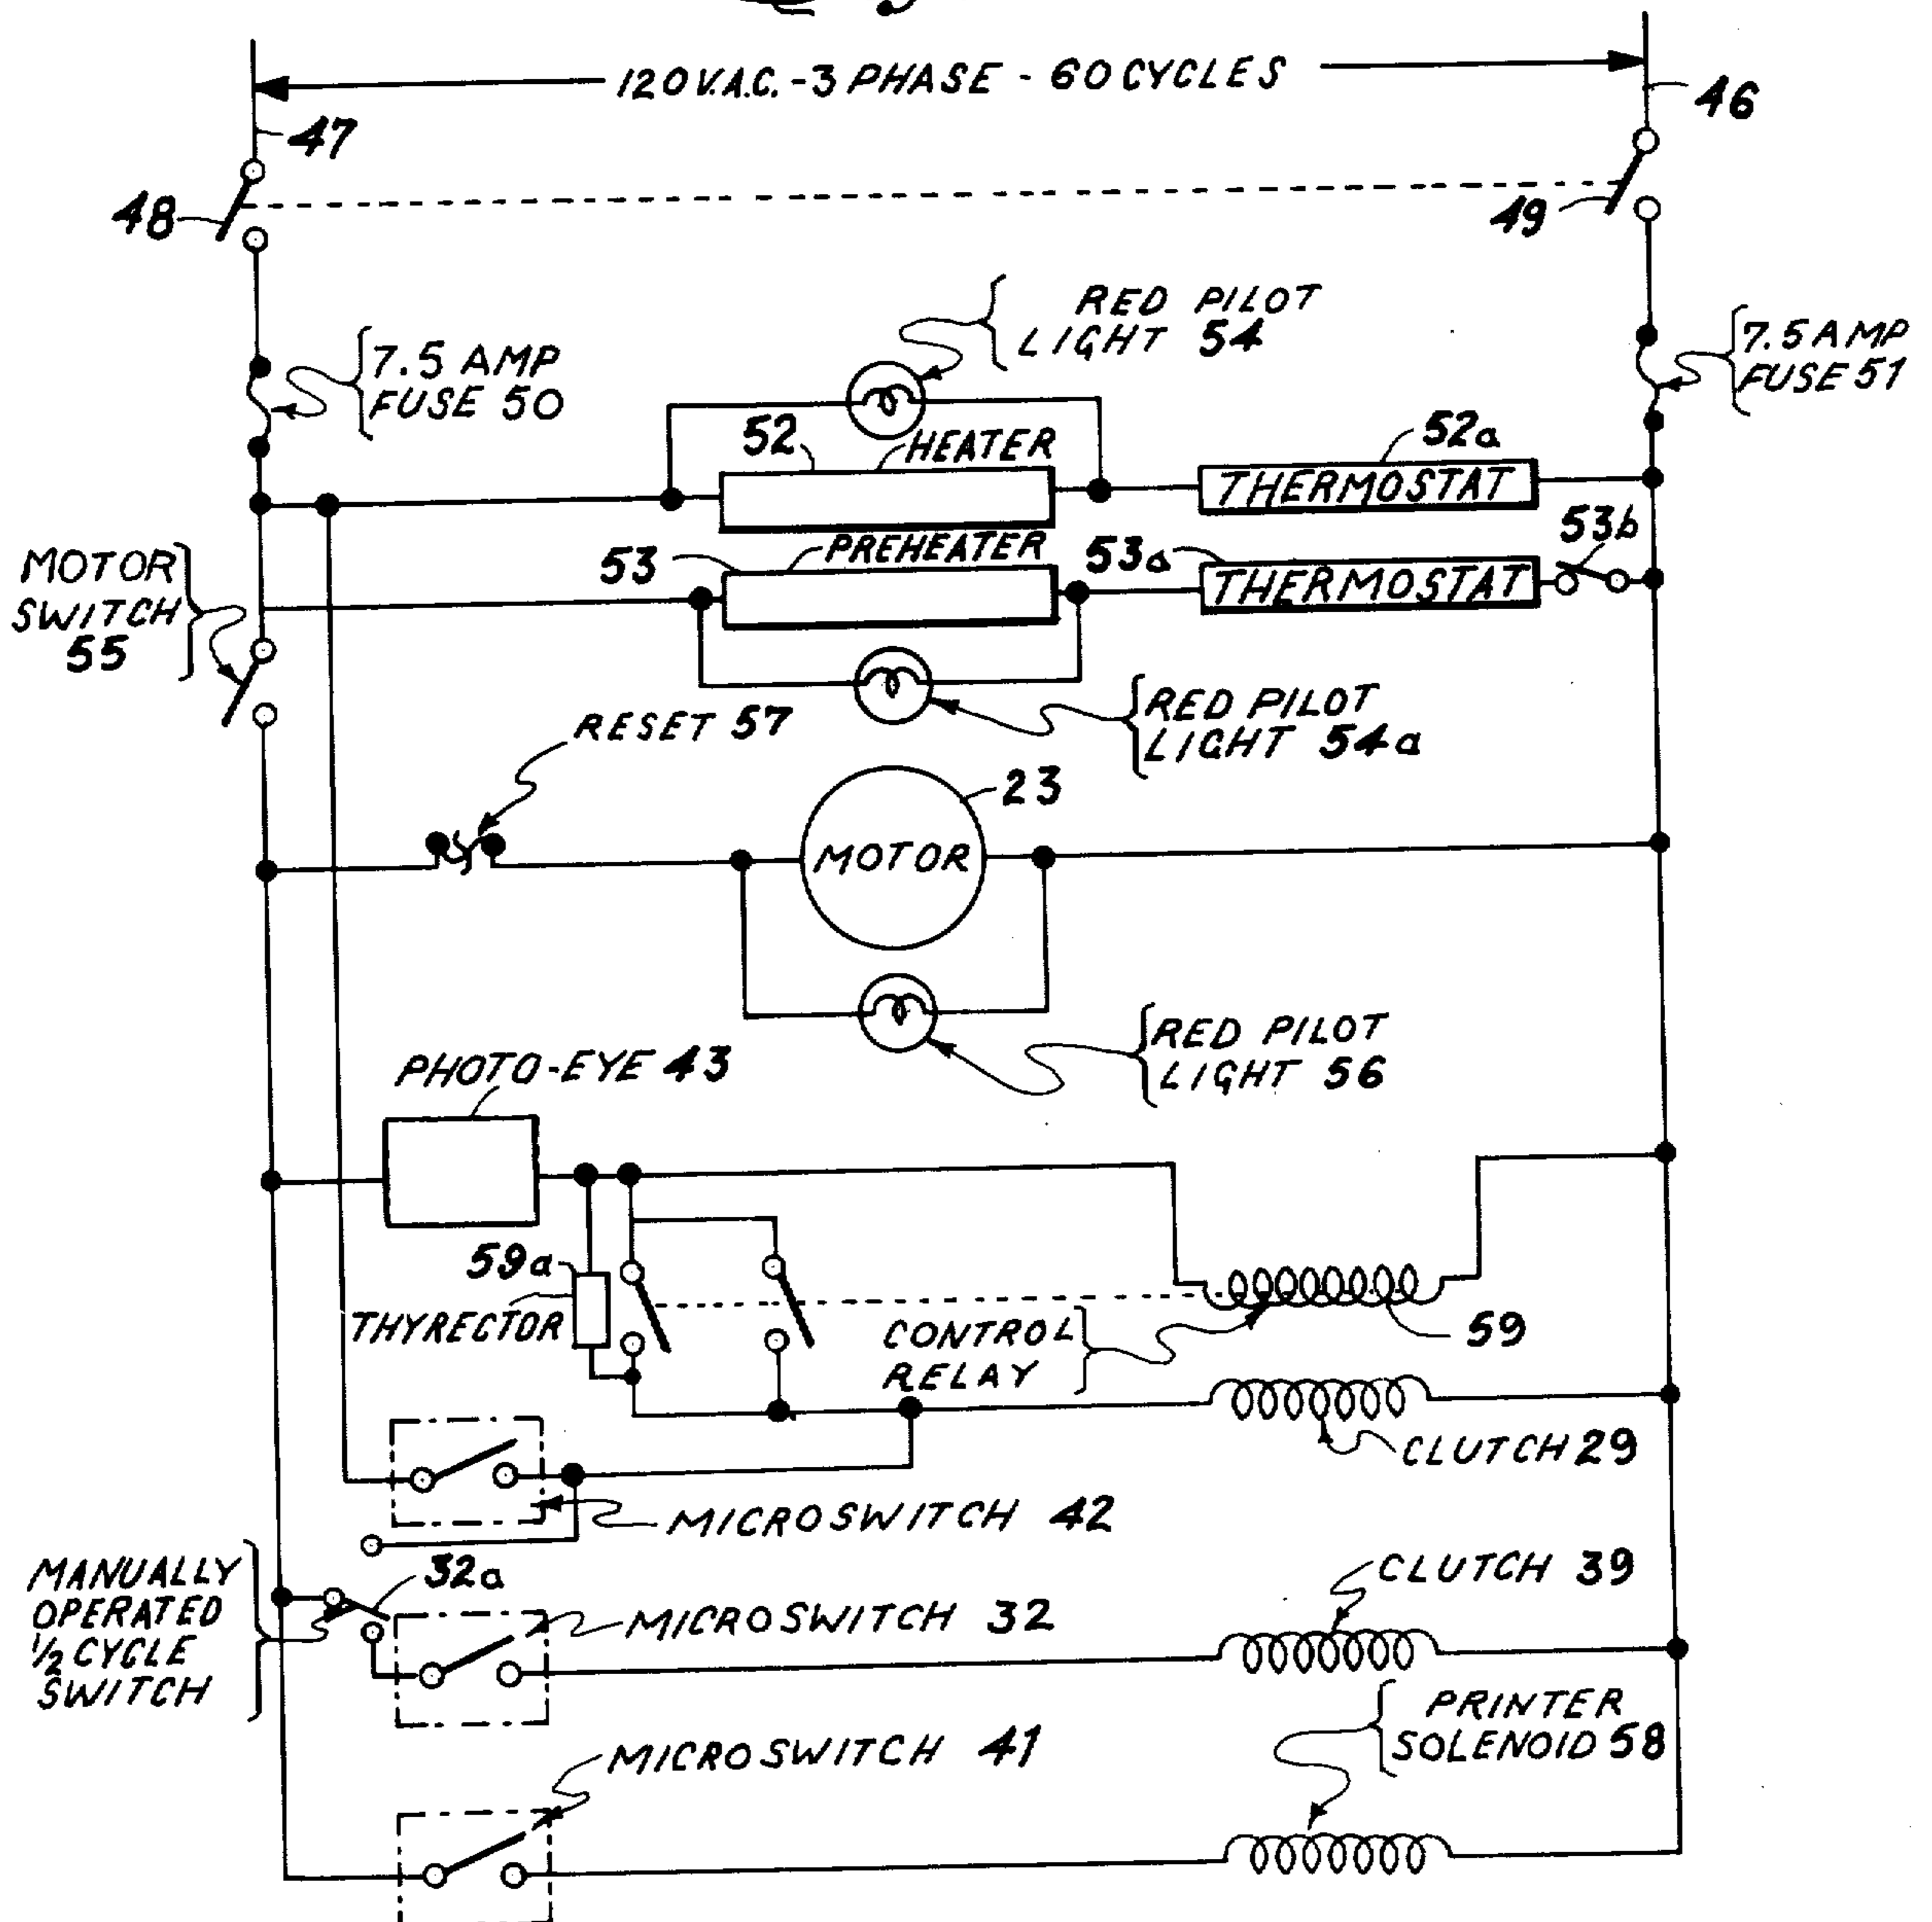 120 V.A.C. - 3 PHASE - 60 CYCLES
46
47
48
49
RED PILOT
LIGHT 54
7.5 AMP
FUSE 50
7.5 AMP
FUSE 51
52
HEATER
52a
THERMOSTAT
53
PREHEATER
53a
THERMOSTAT
53b
MOTOR
SWITCH
55
RED PILOT
LIGHT 54a
RESET 57
23
MOTOR
RED PILOT
LIGHT 56
PHOTO-EYE 43
59a
THYRECTOR
CONTROL
RELAY
59
CLUTCH 29
MICROSWITCH 42
MANUALLY
OPERATED
1/2 CYCLE
SWITCH
32a
CLUTCH 39
MICROSWITCH 32
PRINTER
SOLENOID 58
MICROSWITCH 41